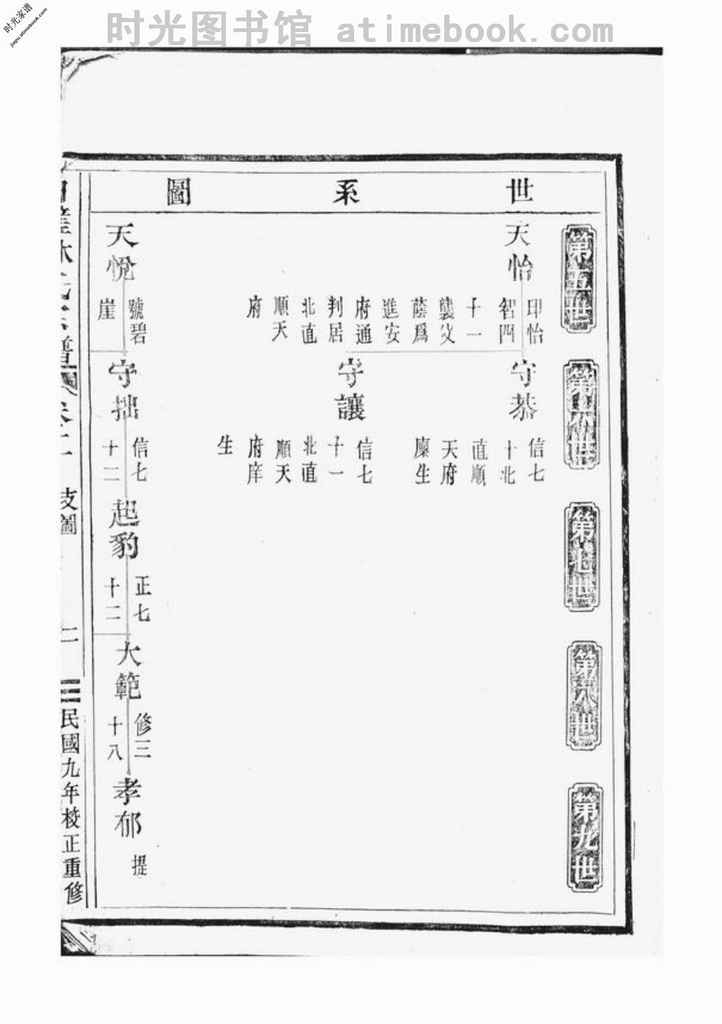 时光图书馆 atimebook.com
时光家谱
jiapu.atimebook.com
世系圖
第五世
第六世
第七世
第八世
第九世
天怡
印怡
智四
十一
襲父
蔭爲
進安
府通
判居
北直
順天
府
守恭
信七
十北
直順
天府
廩生
守讓
信七
十一
北直
順天
府庠
生
天悅
號碧
崖
守拙
信七
十二
起豹
正七
十二
大範
修三
十八
孝郁
提
卷二
支圖
二
民國九年校正重修